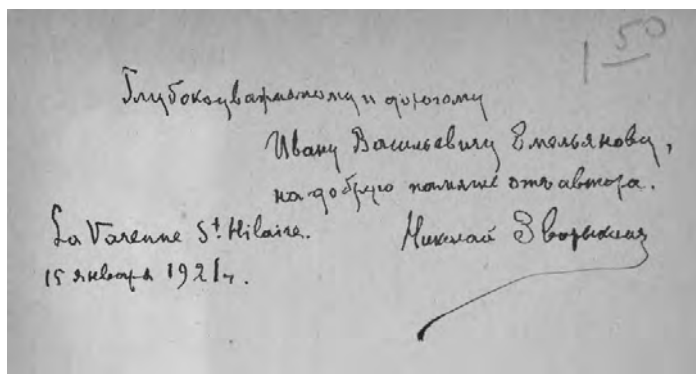 1 50
Глубокоуважаемому и дорогому
Ивану Васильевичу Емельянову,
на добрую память отъ автора.
La Varenne St. Hilaire. Николай Зворыкинъ
15 января 1921г.